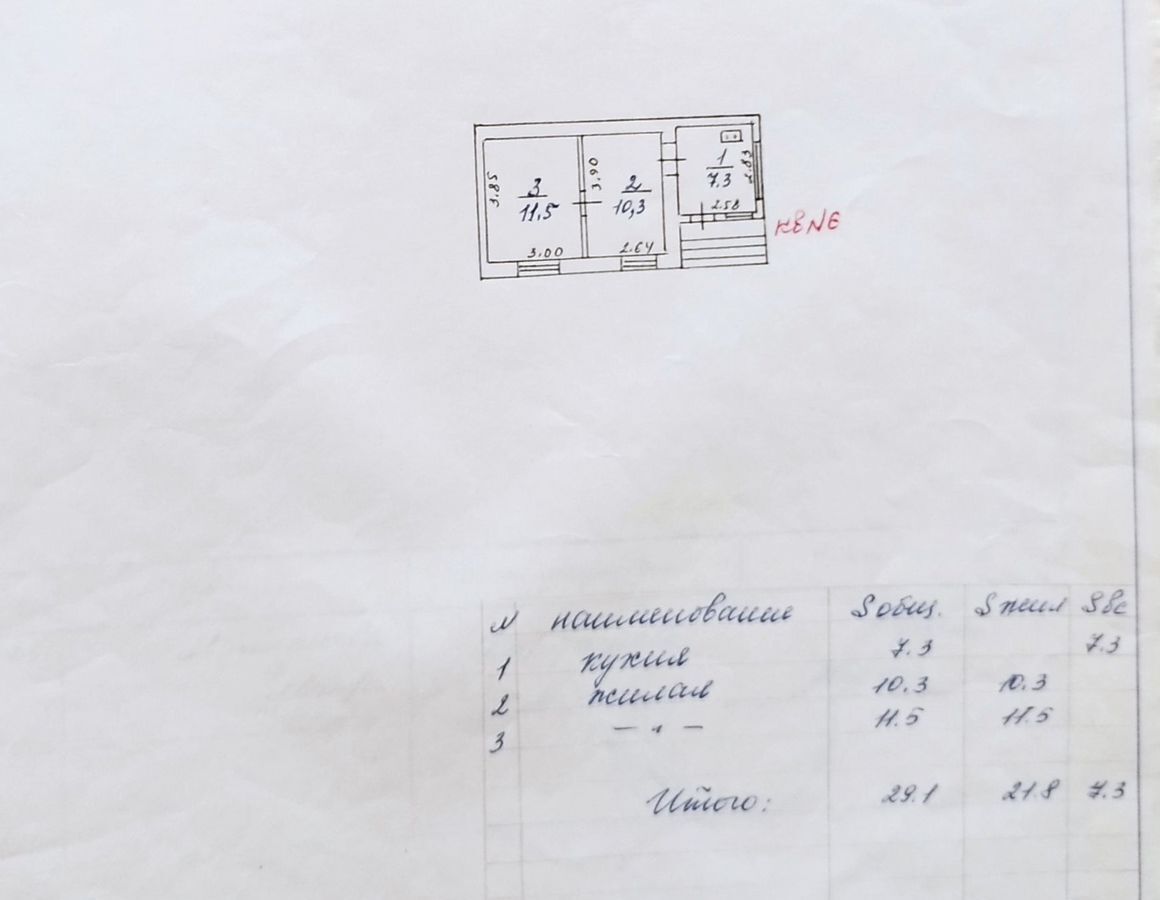 1
7.3
2.83
2.58
2
10,3
3.90
2.64
3
11,5
3.85
3.00
N наименование Sобщ. Sжил Sвс
1 кухня 7.3 7.3
2 жилая 10.3 10.3
3 — " — 11.5 11.5
Итого: 29.1 21.8 7.3